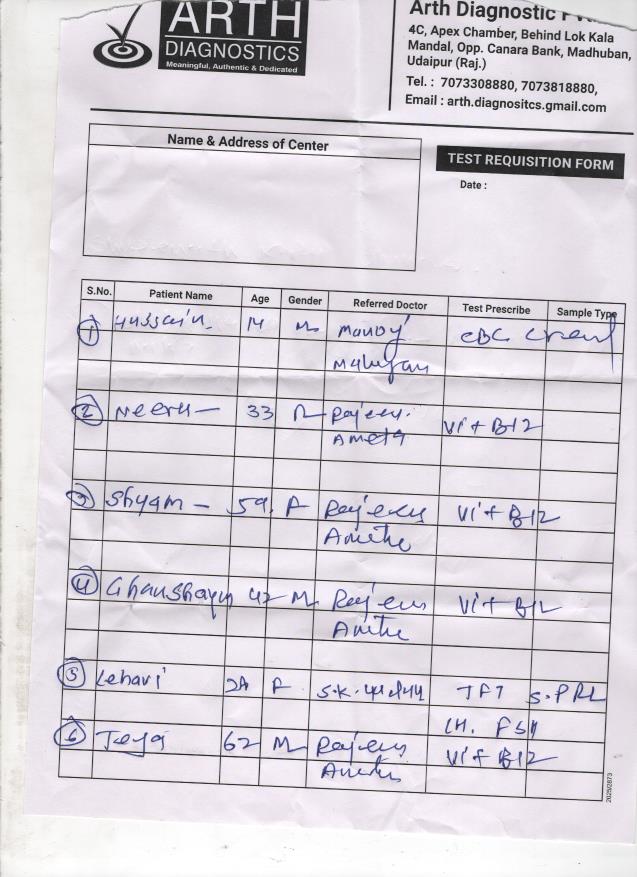 ARTH
DIAGNOSTICS
Meaningful, Authentic & Dedicated
Arth Diagnostic
4C, Apex Chamber, Behind Lok Kala
Mandal, Opp. Canara Bank, Madhuban,
Udaipur (Raj.)
Tel. : 7073308880, 7073818880,
Email : arth.diagnositcs.gmail.com
Name & Address of Center
TEST REQUISITION FORM
Date :
S.No. Patient Name Age Gender Referred Doctor Test Prescribe Sample Type
1 Hussain 14 M Manoj CBC
2 Neeru - 33 Rajeev Vit B12
Ameta
3 Shyam - 59 F Vit B12
4 Ghanshyam 42 M Vit B12
5 Lehari 24 F S.K. TFT S.PRL
LH. FSH
6 Teja 62 M Vit B12
2025/2873